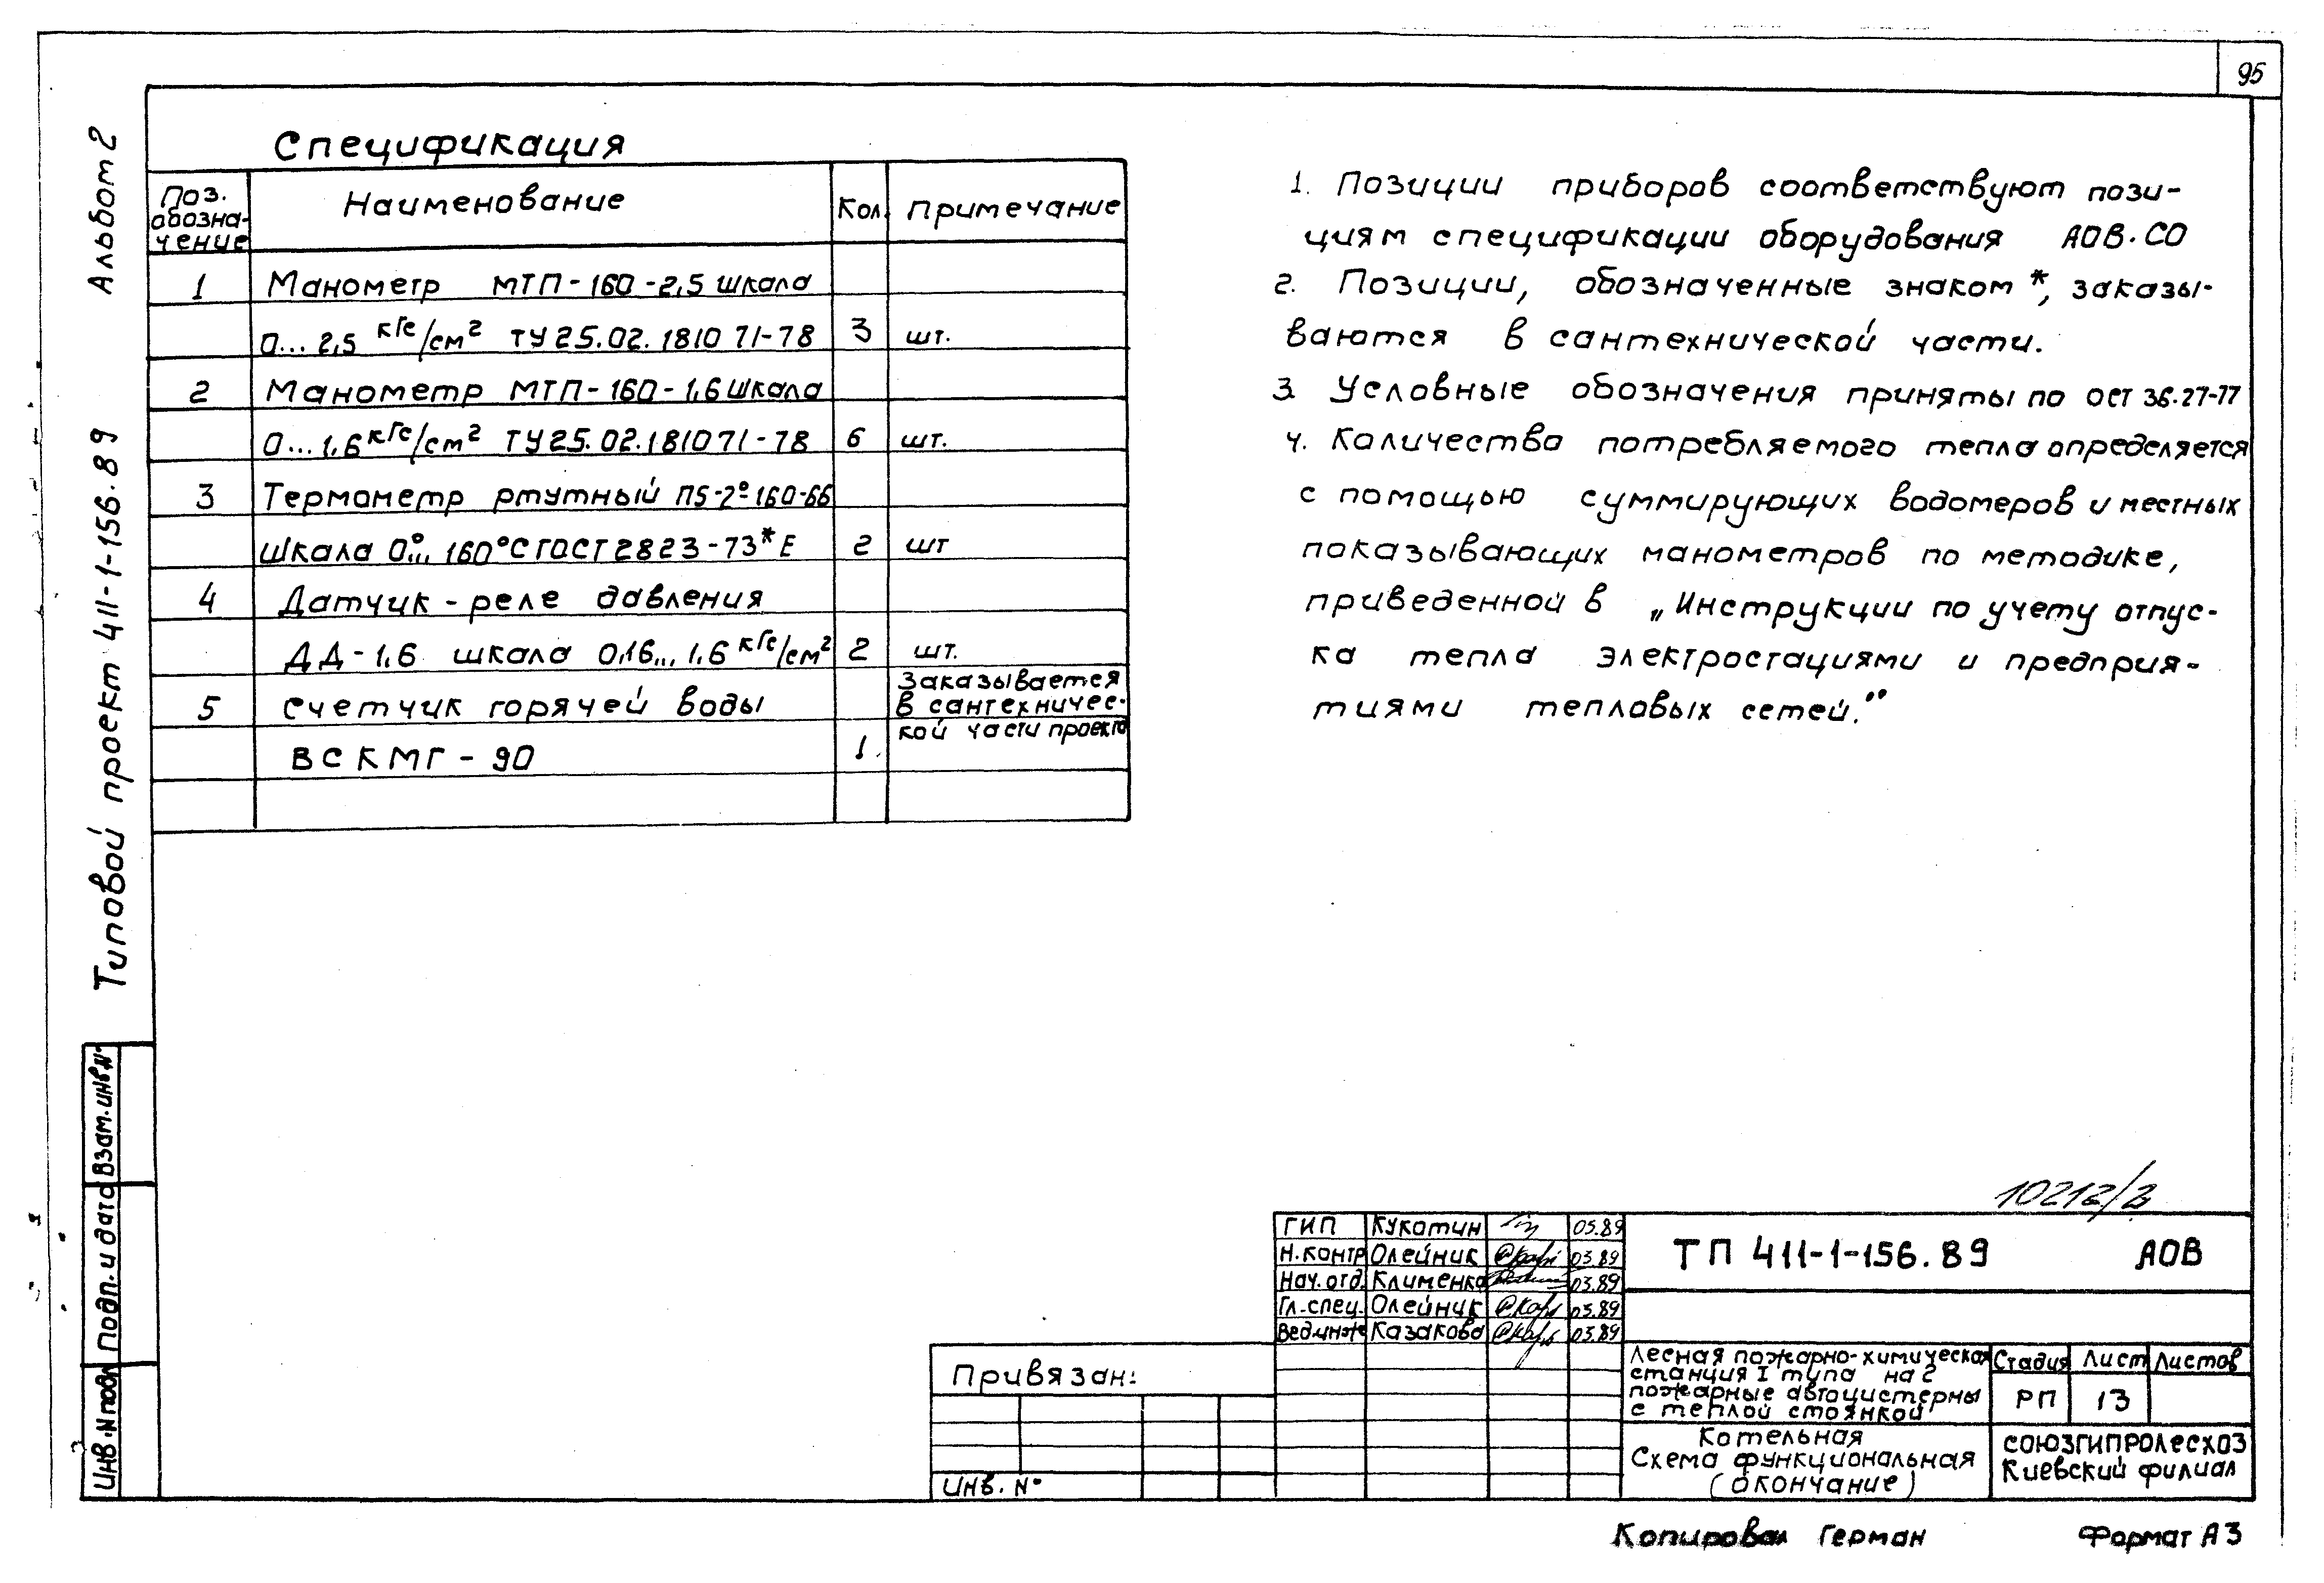 95
Альбом 2
Типовой проект 411-1-156.89
Спецификация
Поз. обозна- чение
Наименование
Кол.
Примечание
1 Манометр МТП-160-2,5 шкала
0...2,5 кгс/см² ТУ 25.02.181071-78 3 шт.
2 Манометр МТП-160-1,6 шкала
0...1,6 кгс/см² ТУ 25.02.181071-78 6 шт.
3 Термометр ртутный П5-2°-160-66
шкала 0°...160°С ГОСТ 2823-73*Е 2 шт
4 Датчик-реле давления
ДД-1,6 шкала 0,16...1,6 кгс/см² 2 шт.
5 Счетчик горячей воды
ВСКМГ-90 1
Заказывается
в сантехничес-
кой части проекта
1. Позиции приборов соответствуют пози-
циям спецификации оборудования АОВ.СО
2. Позиции, обозначенные знаком *, заказы-
ваются в сантехнической части.
3. Условные обозначения приняты по ОСТ 36.27-77
4. Количество потребляемого тепла определяется
с помощью суммирующих водомеров и местных
показывающих манометров по методике,
приведенной в „Инструкции по учету отпус-
ка тепла электростациями и предприя-
тиями тепловых сетей."
Взам.инв.№
Подп. и дата
Инв.N подл
10212/2
ГИП Кукотин 05.89
Н.контр Олейник 03.89
Нач.отд. Клименко 03.89
Гл.спец. Олейник 03.89
Вед.инж Казакова 03.89
ТП 411-1-156.89 АОВ
Привязан:
Инв. №
Лесная пожарно-химическая
станция I типа на 2
пожарные автоцистерны
с теплой стоянкой
Стадия Лист Листов
РП 13
Котельная
Схема функциональная
(окончание)
СОЮЗГИПРОЛЕСХОЗ
Киевский филиал
Копировал Герман
Формат А3